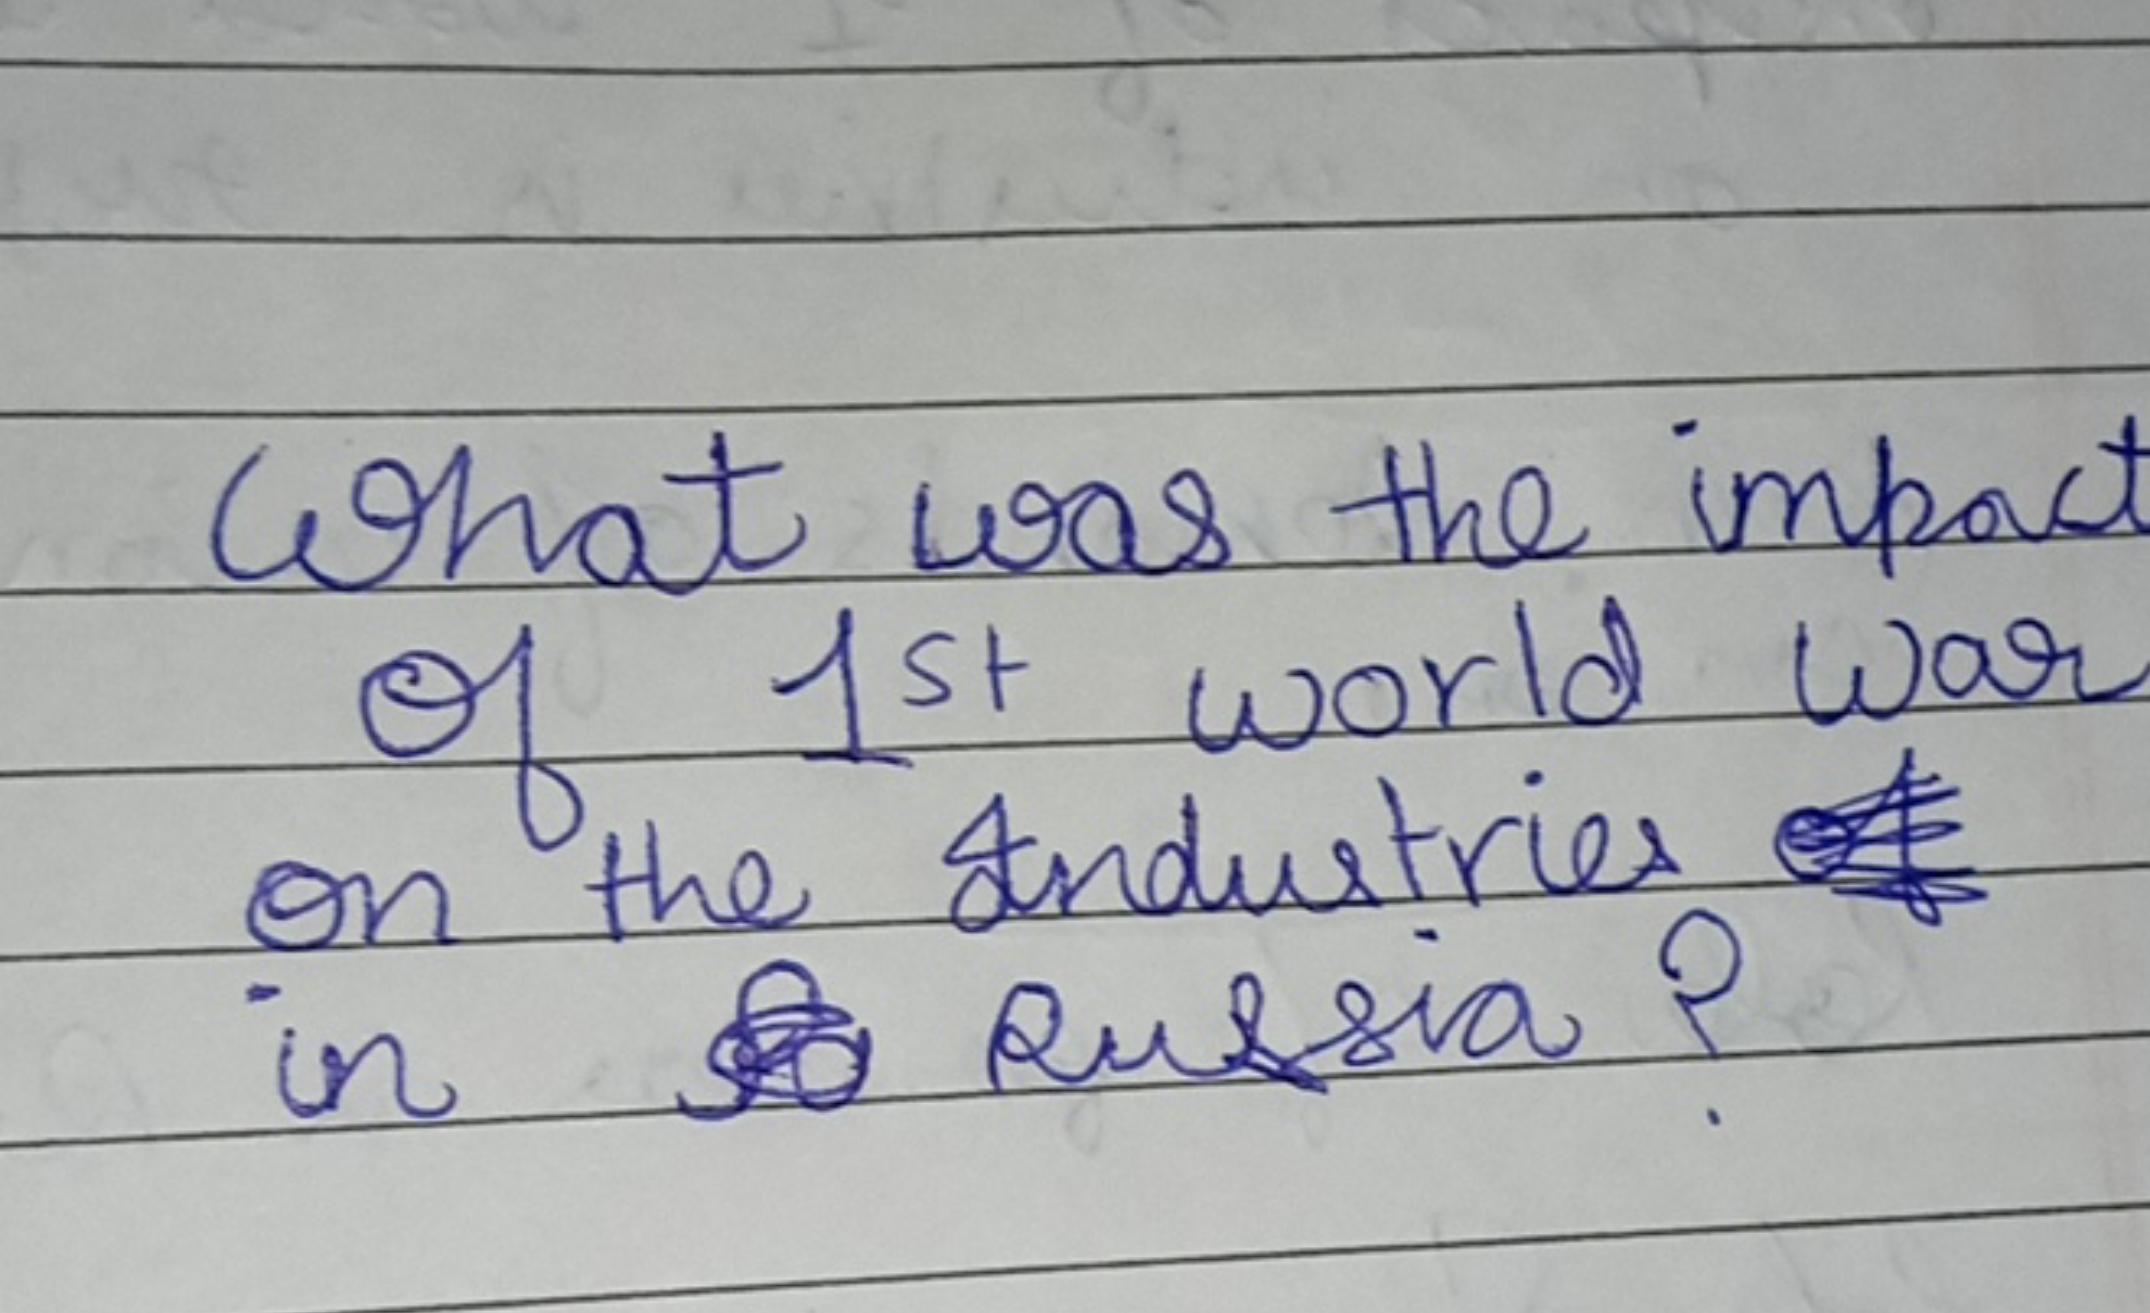 What was the impact
of 1st world war
on the Industries
in Russia ?